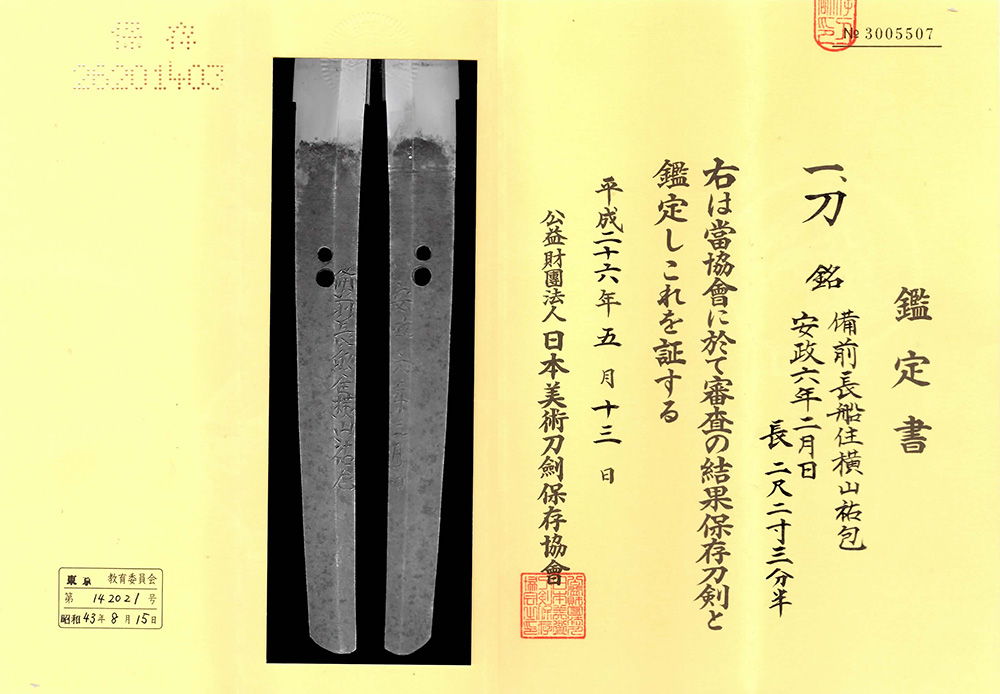 № 3005507
鑑定書
一、刀 銘 備前長船住横山祐包
安政六年二月日
長 二尺二寸三分半
右は當協會に於て審査の結果保存刀剣と
鑑定しこれを証する
平成二十六年五月十三日
公益財團法人日本美術刀劍保存協會
保存
26201403
備前長船住横山祐包
東京 教育委員会
第 142021 号
昭和43年8月15日